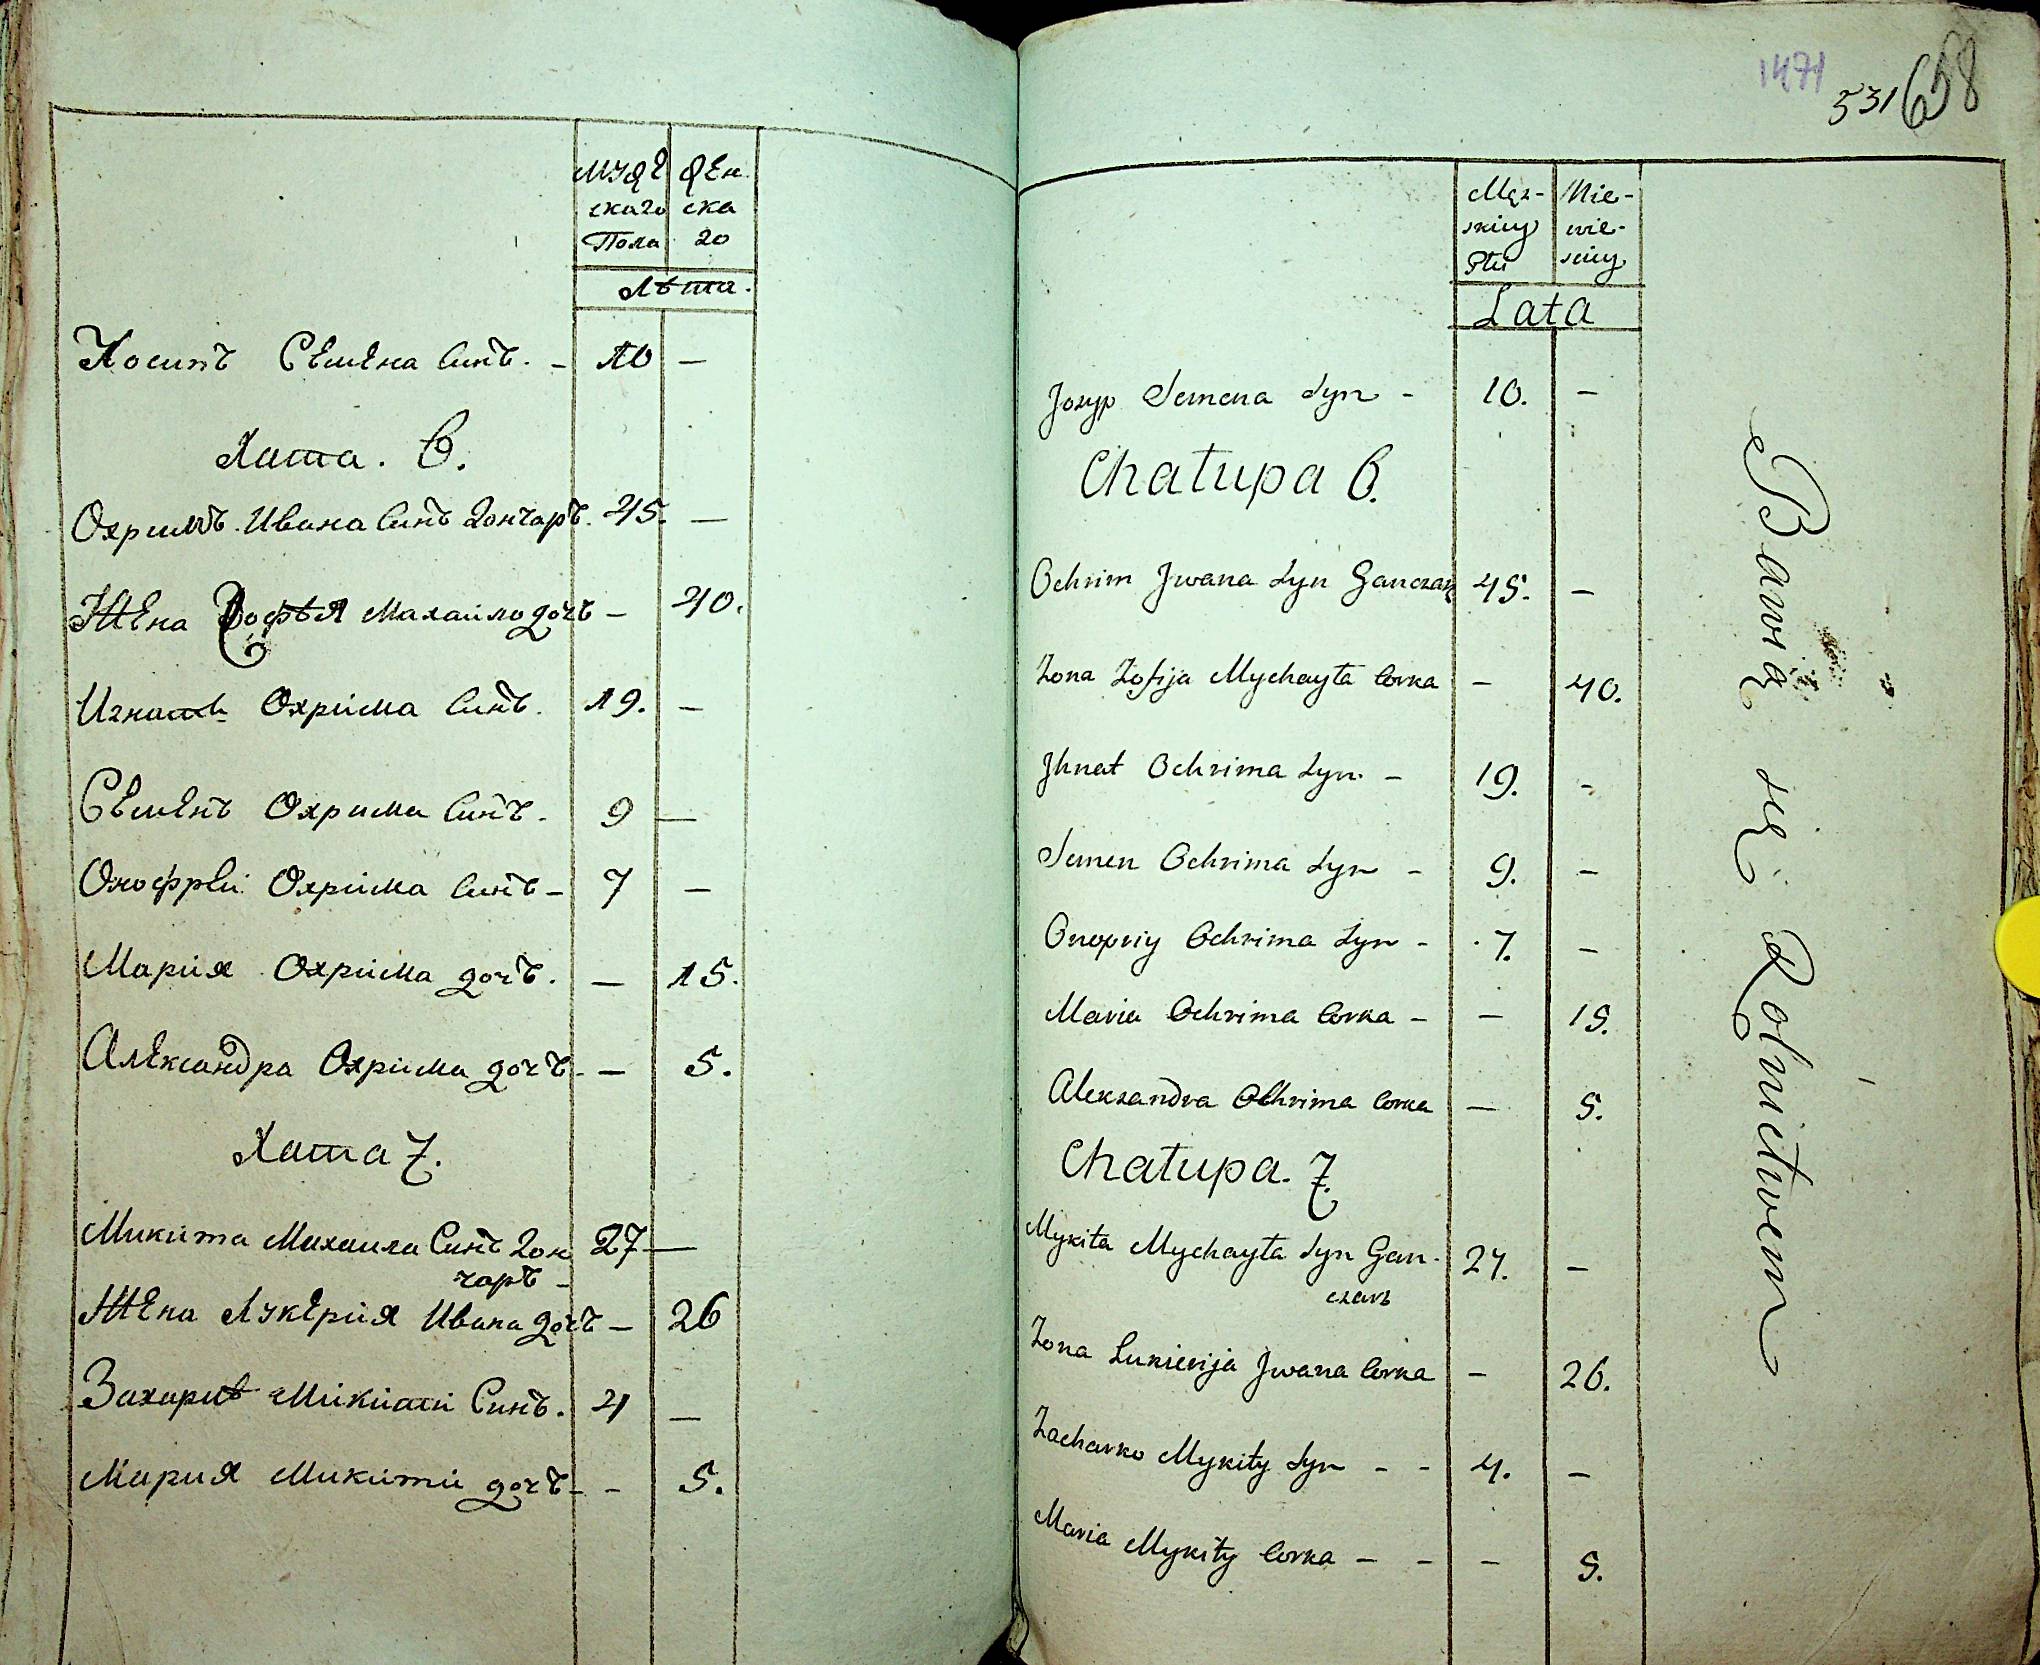 мужe жен
скаго ска
Пола го
Лѣта.
Иосипъ Семена Синъ. - 10 —
Хата. 6.
Охримъ Ивана Синъ Гончаръ. 45. —
Жена Зофѣя Махайло дочъ — 40.
Игнатъ Охріма Синъ. 19. —
Семенъ Охрима Синъ. 9 —
Онофрей Охріма Синъ — 7 —
Марія Охріма дочъ. — 15.
Александра Охріма дочъ — — 5.
Хата 7.
Микита Михаила Синъ Гон 27 —
чаръ —
Жена Лукерія Ивана дочъ — 26
Захарѣ Мікіти Синъ. 4 —
Мария Микитіи дочъ - - 5.
1471
531 658
Męz- Nie-
skiey wie-
Płci sciey
Lata
Jozyp Semena Syn - 10. —
Chałupa 6.
Ochrim Jwana Syn Ganczarz 45. —
Zona Zofija Mychayła Corka — 40.
Jhnat Ochrima Syn. — 19. -
Semen Ochrima Syn - 9. —
Onopriy Ochrima Syn - 7. —
Maria Ochrima Corka — — 15.
Aleksandra Ochrima Corka — 5.
Chałupa. 7.
Mykita Mychayła Syn Gan- 27. —
czarz
Zona Lukierija Jwana Corka — 26.
Zacharko Mykity Syn - - 4. —
Maria Mykity Corka — - — 5.
Bawią się Rolnictwem